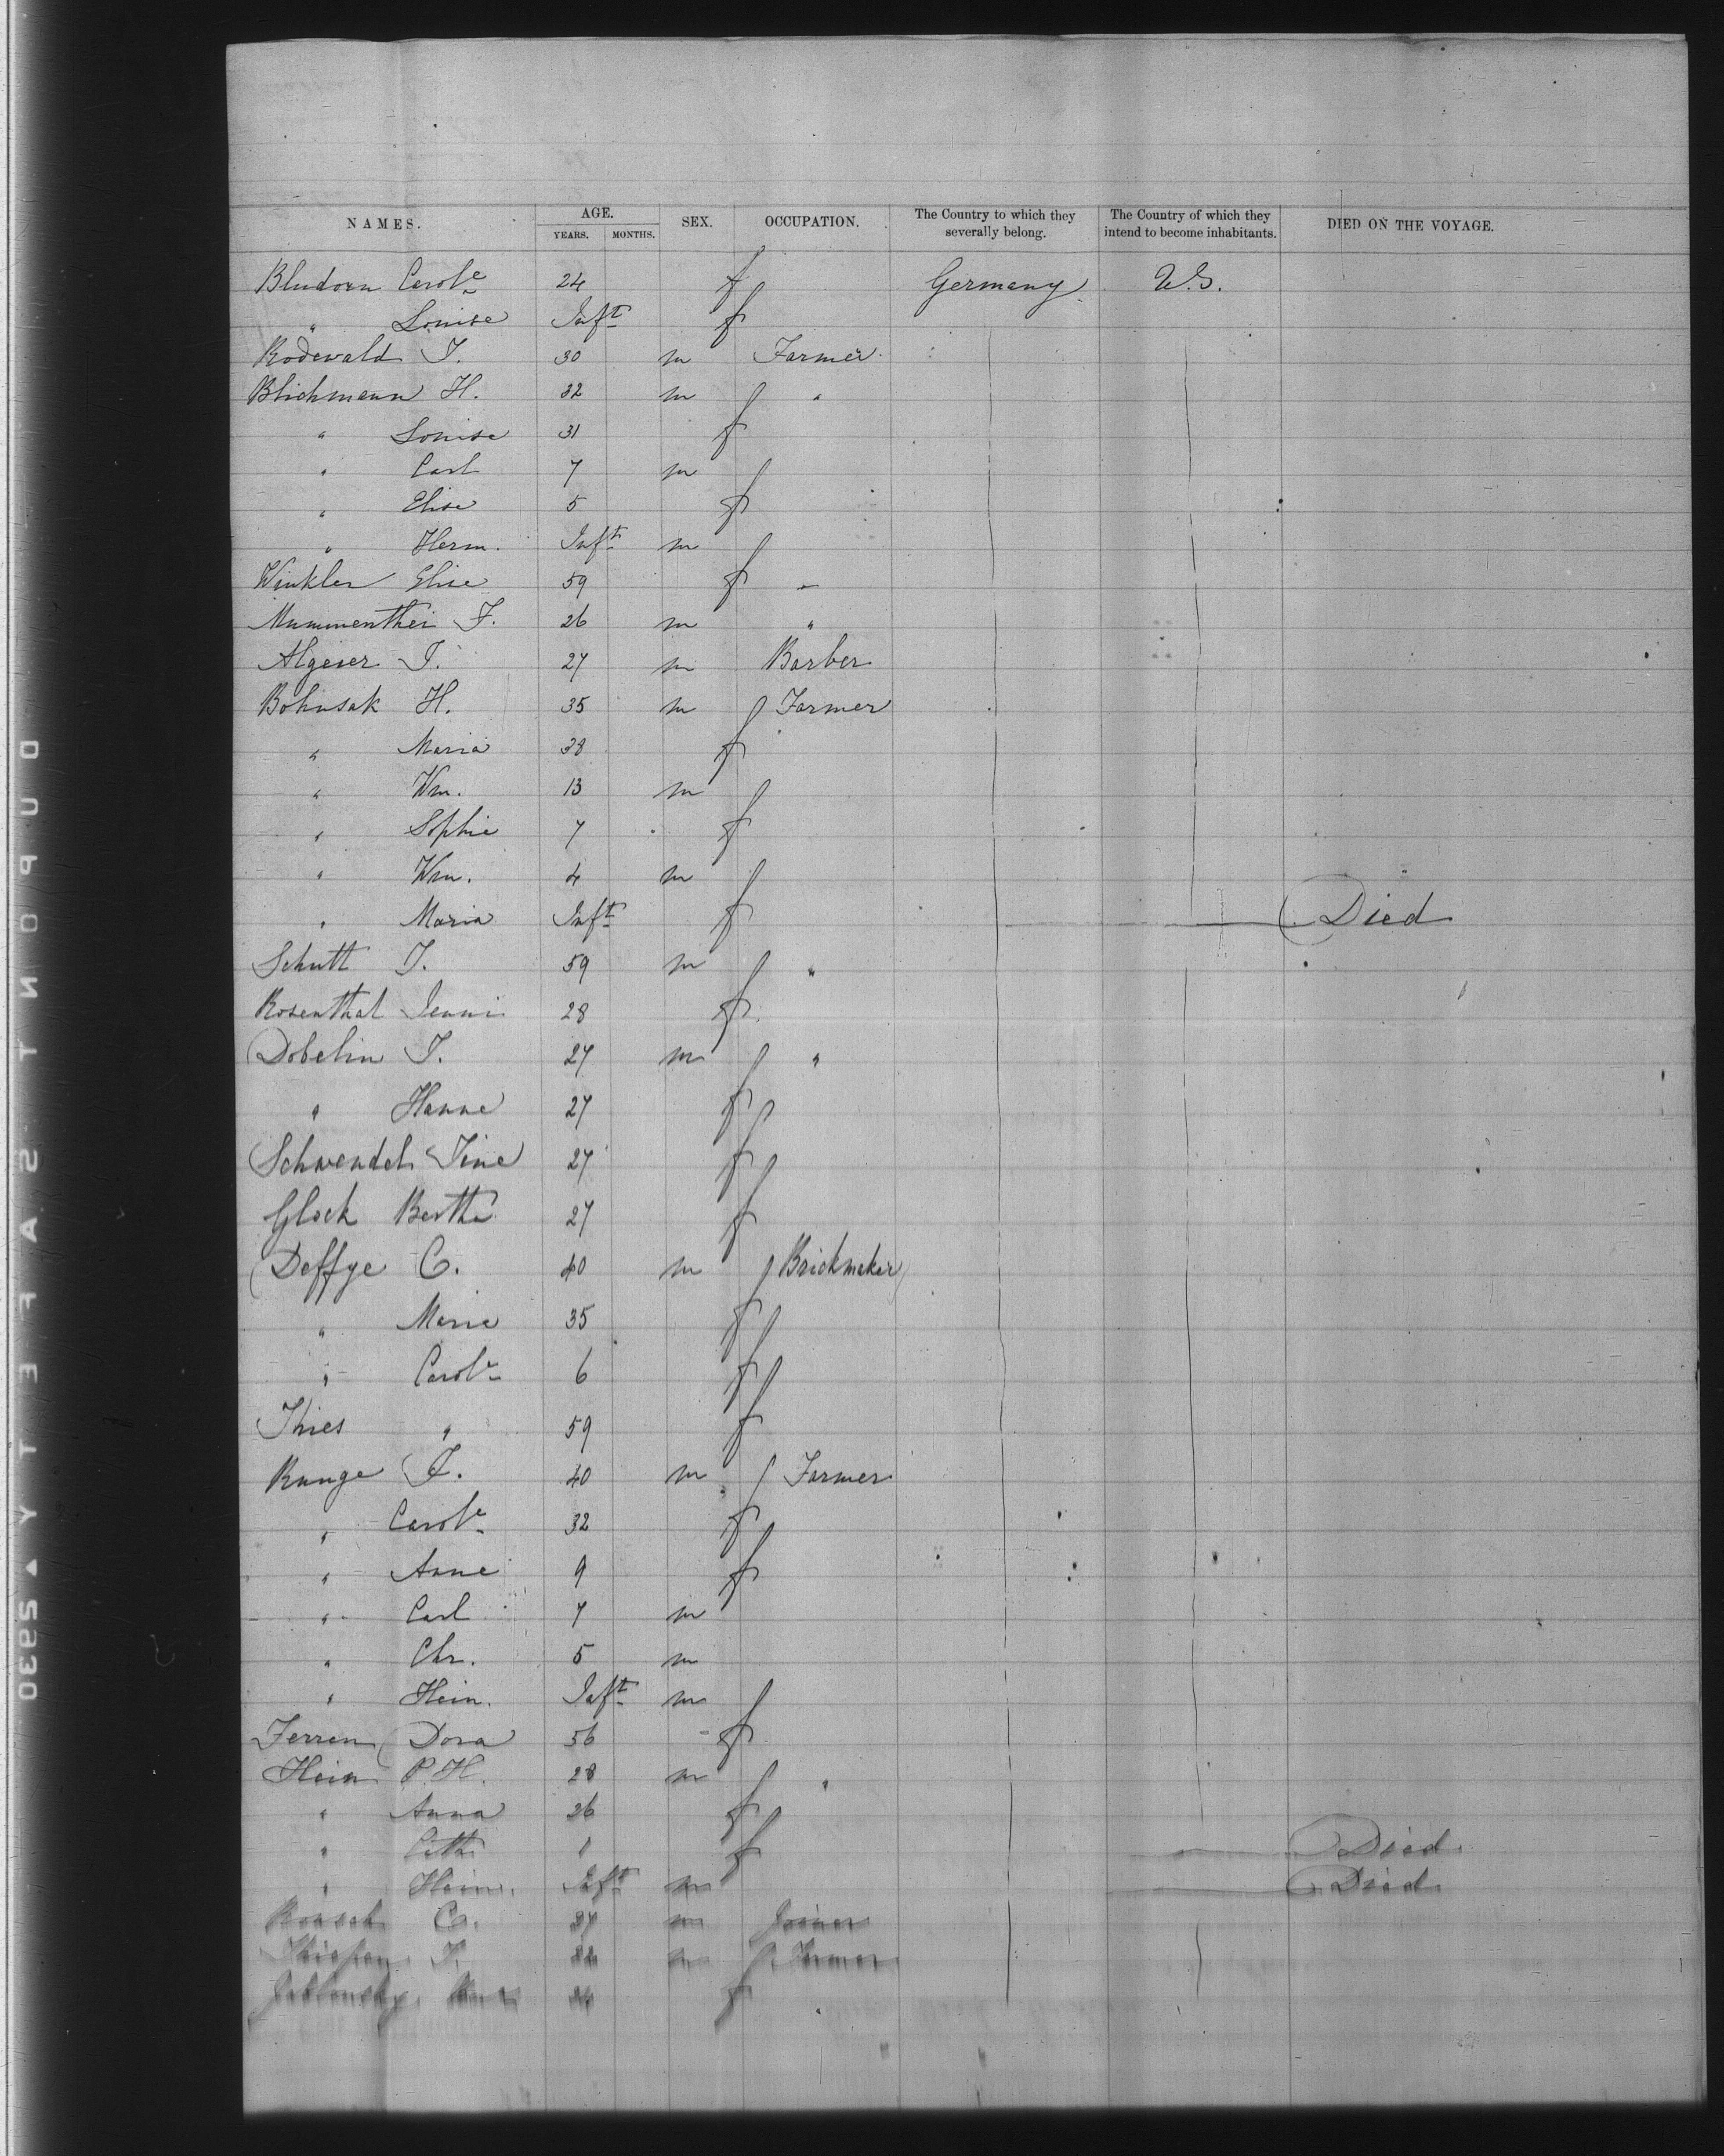 NAMES. AGE. YEARS. MONTHS. SEX. OCCUPATION. The Country to which they severally belong. The Country of which they intend to become inhabitants. DIED ON THE VOYAGE.
Bludorn Carole 24 f Germany U.S.
" Louise Inft f
Rodewald J. 30 m Farmer
Blichmann H. 32 m "
" Louise 31 f
" Carl 7 m
" Elise 5 f
" Herm. Inft m
Winkler Elise 59 f –
Mummenthei F. 26 m "
Algeier J. 27 m Barber
Bohnsak H. 35 m Farmer
" Maria 38 f
" Wm. 13 m
" Sophie 7 f
" Wm. 4 m
" Maria Inft f Died
Schutt J. 59 m "
Rosenthal Jenni 28 f
Dobelin J. 27 m "
" Hanne 27 f
Schwendel Tine 27 f
Glock Bertha 27 f
Deffge C. 40 m Brickmaker
" Marie 35 f
" Carole 6 f
Thies " 59 f
Runge F. 40 m Farmer
" Carole 32 f
" Anne 9 f
" Carl 7 m
" Chr. 5 m
" Hein. Inft m
Ferren Dora 56 f
Hein P.H. 28 m "
" Anna 26 f
" Cath 1 f Died
" Hein. Inft m Died
C. m Joiner
m Farmer
Jablonsky f
DUPONT SAFETY 5930